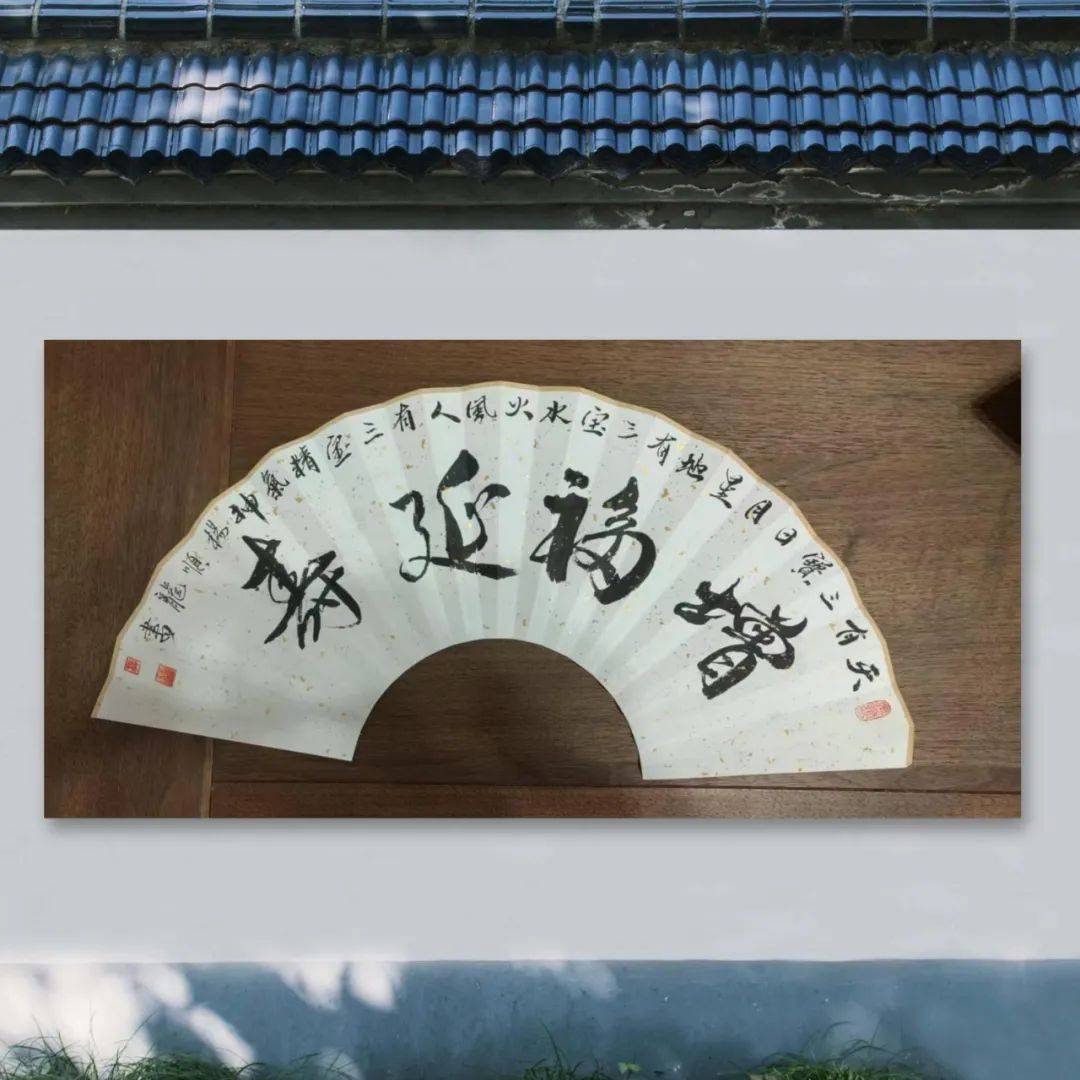 增福延寿
天有三寶日月星地有三宝水火風人有三宝精氣神
楊順龍書